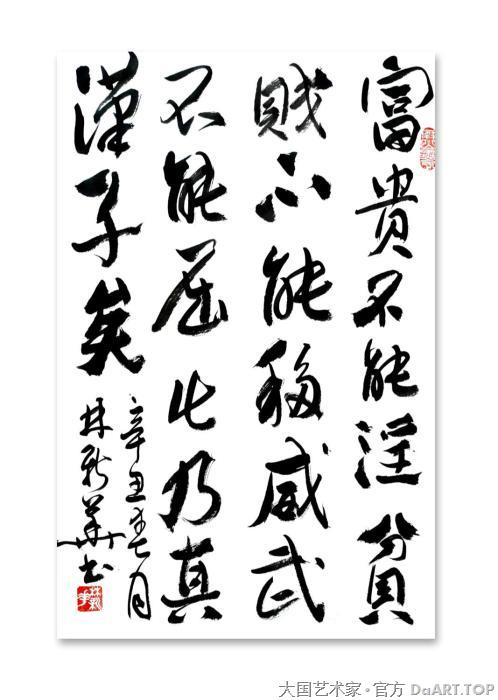 富贵不能淫貧
賤不能移威武
不能屈此乃真
漢子矣
辛丑年七月
林新華书
大国艺术家·官方 DaART.TOP